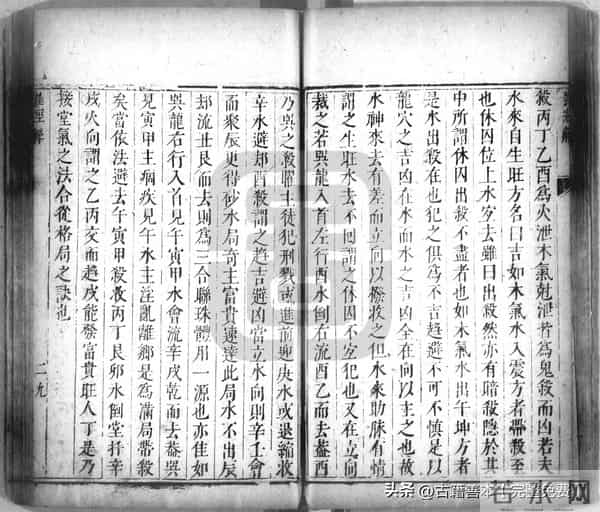 殺丙丁乙酉為火泄木氣剋泄者為鬼殺而凶若夫
水來自生旺方名曰吉如木氣水入震方者帶殺至
也休囚位上水宜去雖曰出殺然亦有暗殺隱於其
中所謂休囚出殺不盡者也如木氣水出午坤方者
是水出殺在也犯之俱為不吉趨避不可不慎是以
龍穴之吉凶在水而水之吉凶全在向以主之也故
水神來去有差而立向以撥救之但水來助脉有情
謂之生旺水去不囘謂之休囚不宜犯也又在立向
裁之若巽龍入首左行酉水倒右流乙丙而去葢酉
乃巽之殺曜主徒犯刑戮或進前迎庚水或退縮收
辛水避却酉殺謂之趨吉避凶當立水向則辛壬會
而聚辰更得砂水局奇主富貴速達此局水不出辰
却流丑艮而去則為三合聯珠體用一源也亦佳如
巽龍右行入首見午寅甲水會流辛戌乾而去葢巽
見寅甲主瘋疾見午水主淫亂離鄉是為滿局帶殺
矣當依法避去午寅甲殺收丙丁艮卯水倒堂扦辛
戌火向謂之乙丙交而趨戌能發富貴旺人丁是乃
接堂氣之法合從格局之訣也
二九
头条 @古籍善本